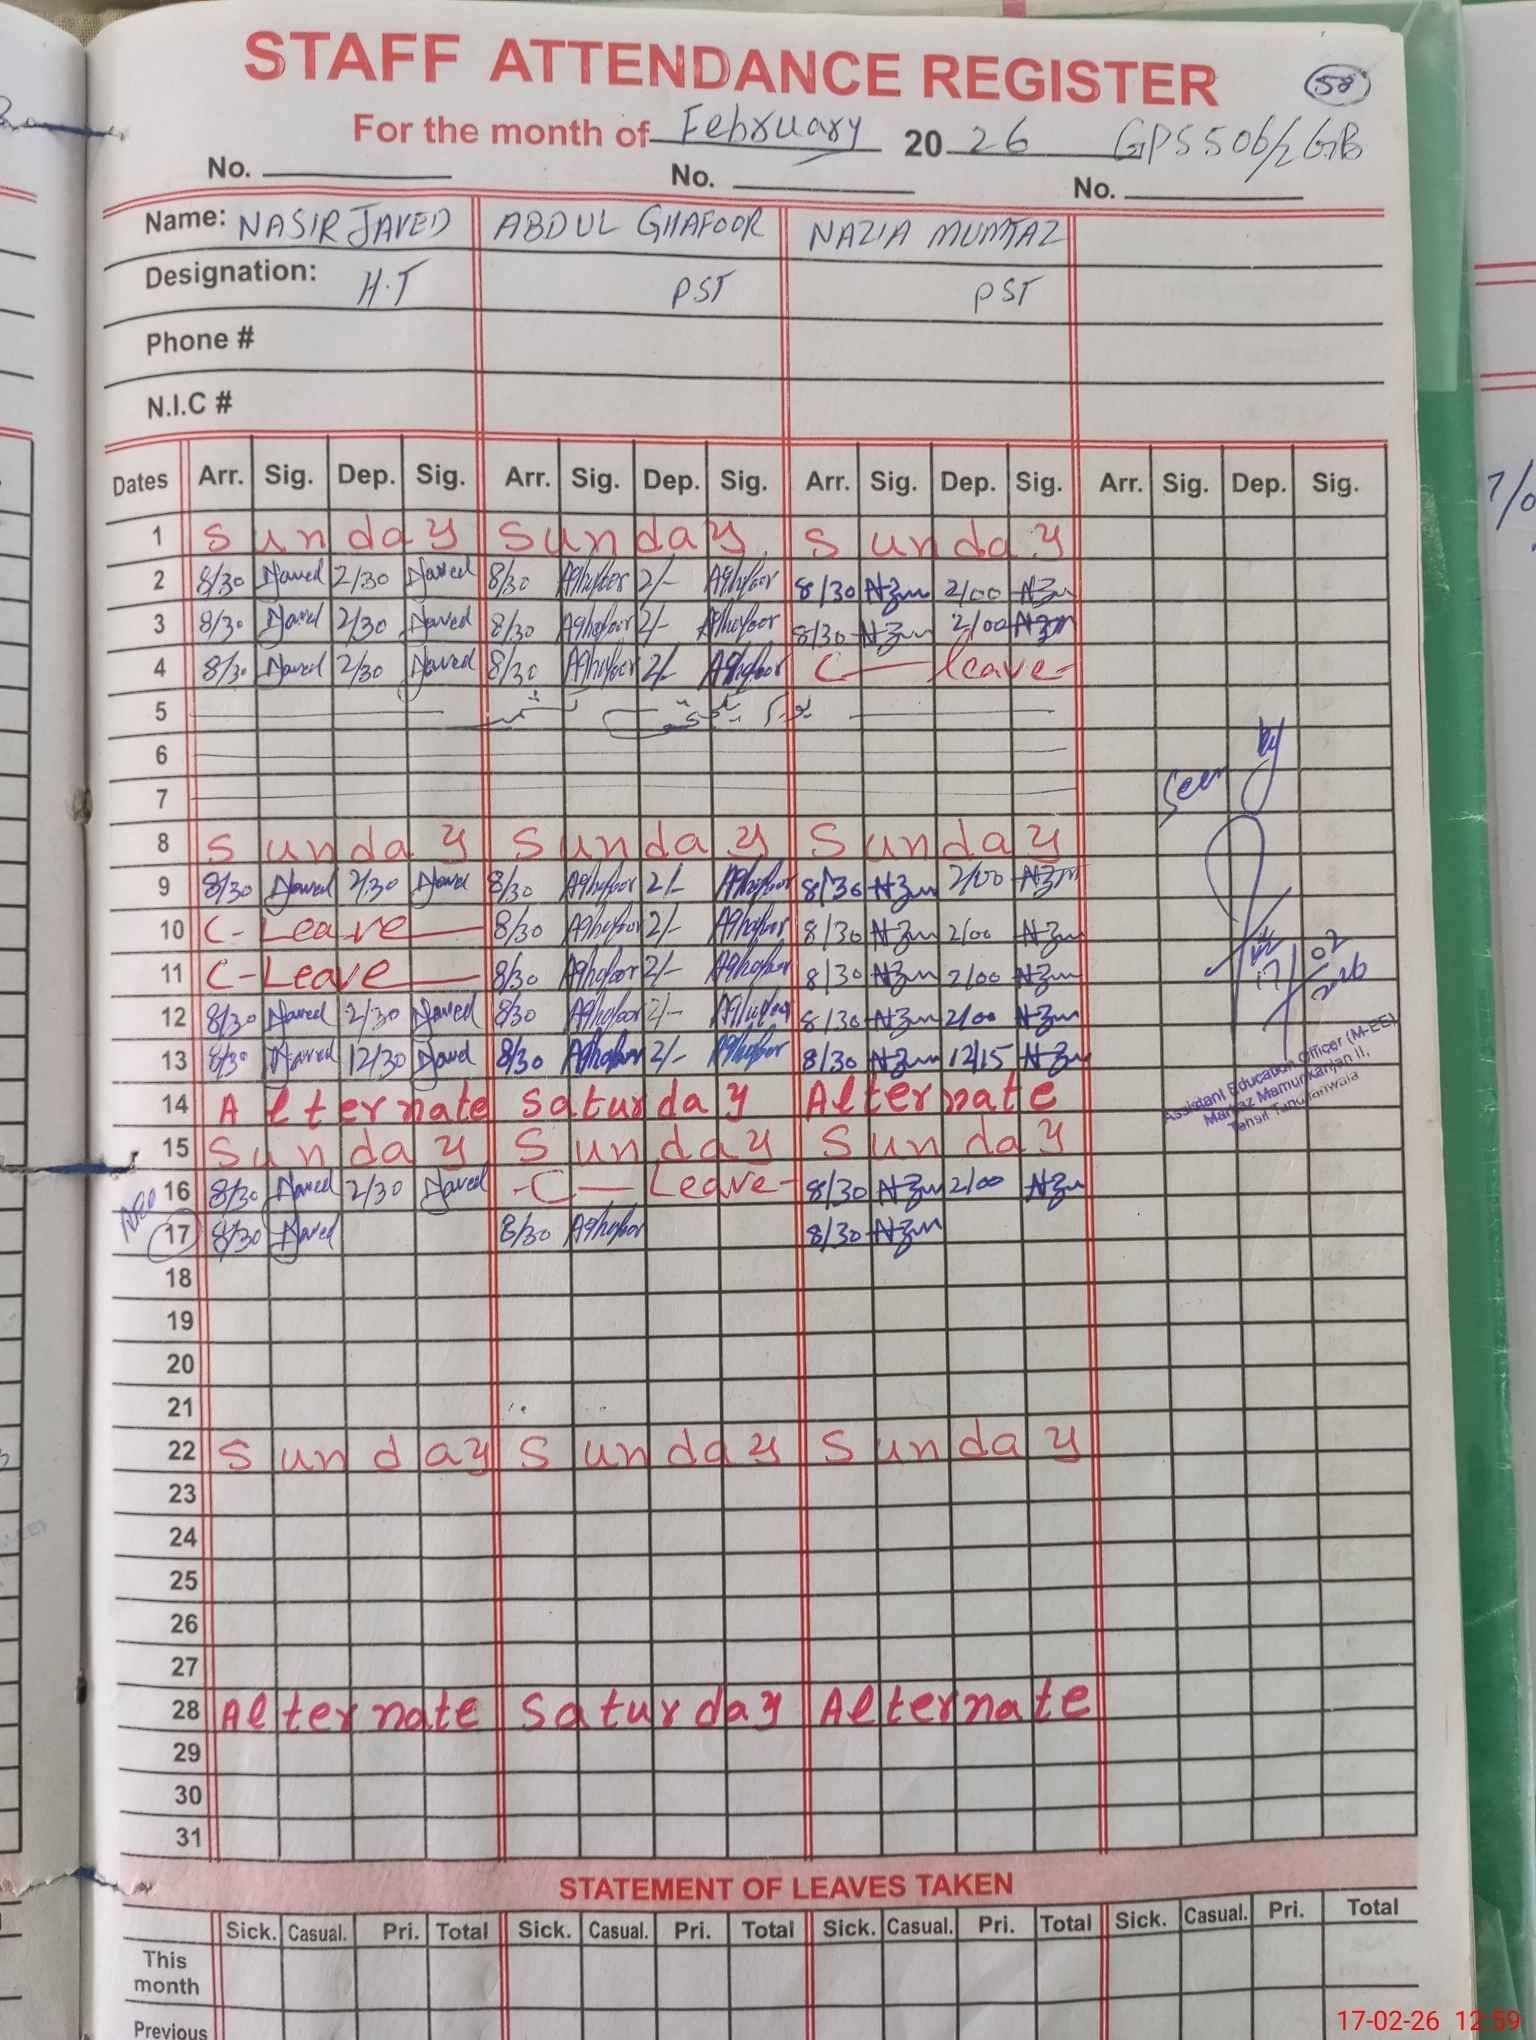 STAFF ATTENDANCE REGISTER 58
For the month of February 2026 GPS 506/2 GB
No. No. No.
Name: NASIR JAVED ABDUL GHAFOOR NAZIA MUMTAZ
Designation: H.T PST PST
Phone #
N.I.C #
Dates Arr. Sig. Dep. Sig. Arr. Sig. Dep. Sig. Arr. Sig. Dep. Sig. Arr. Sig. Dep. Sig.
1 Sunday Sunday Sunday
2 8/30 Javed 2/30 Javed 8/30 Aghafoor 2/- Aghafoor 8/30 2/00
3 8/30 Javed 2/30 Javed 8/30 Aghafoor 2/- Aghafoor 8/30 2/00
4 8/30 Javed 2/30 Javed 8/30 Aghafoor 2/- Aghafoor C - leave -
5
6
7
Seen by
8 Sunday Sunday Sunday
9 8/30 Javed 2/30 Javed 8/30 Aghafoor 2/- Aghafoor 8/30 2/00
10 C - Leave 8/30 Aghafoor 2/- Aghafoor 8/30 2/00
11 C - Leave 8/30 Aghafoor 2/- Aghafoor 8/30 2/00
17/02 2026
12 8/30 Javed 2/30 Javed 8/30 Aghafoor 2/- Aghafoor 8/30 2/00
13 8/30 Javed 12/30 Javed 8/30 Aghafoor 2/- Aghafoor 8/30 12/15
Assistant Education Officer (M-EE)
Markaz Mamunkanjan II,
Tehsil Tandlianwala
14 Alternate Saturday Alternate
15 Sunday Sunday Sunday
16 8/30 Javed 2/30 Javed - C - Leave - 8/30 2/00
AEO
17 8/30 Javed 8/30 Aghafoor 8/30
18
19
20
21
22 Sunday Sunday Sunday
23
24
25
26
27
28 Alternate Saturday Alternate
29
30
31
STATEMENT OF LEAVES TAKEN
Sick. Casual. Pri. Total Sick. Casual. Pri. Total Sick. Casual. Pri. Total Sick. Casual. Pri. Total
This
month
Previous
17-02-26 12:59